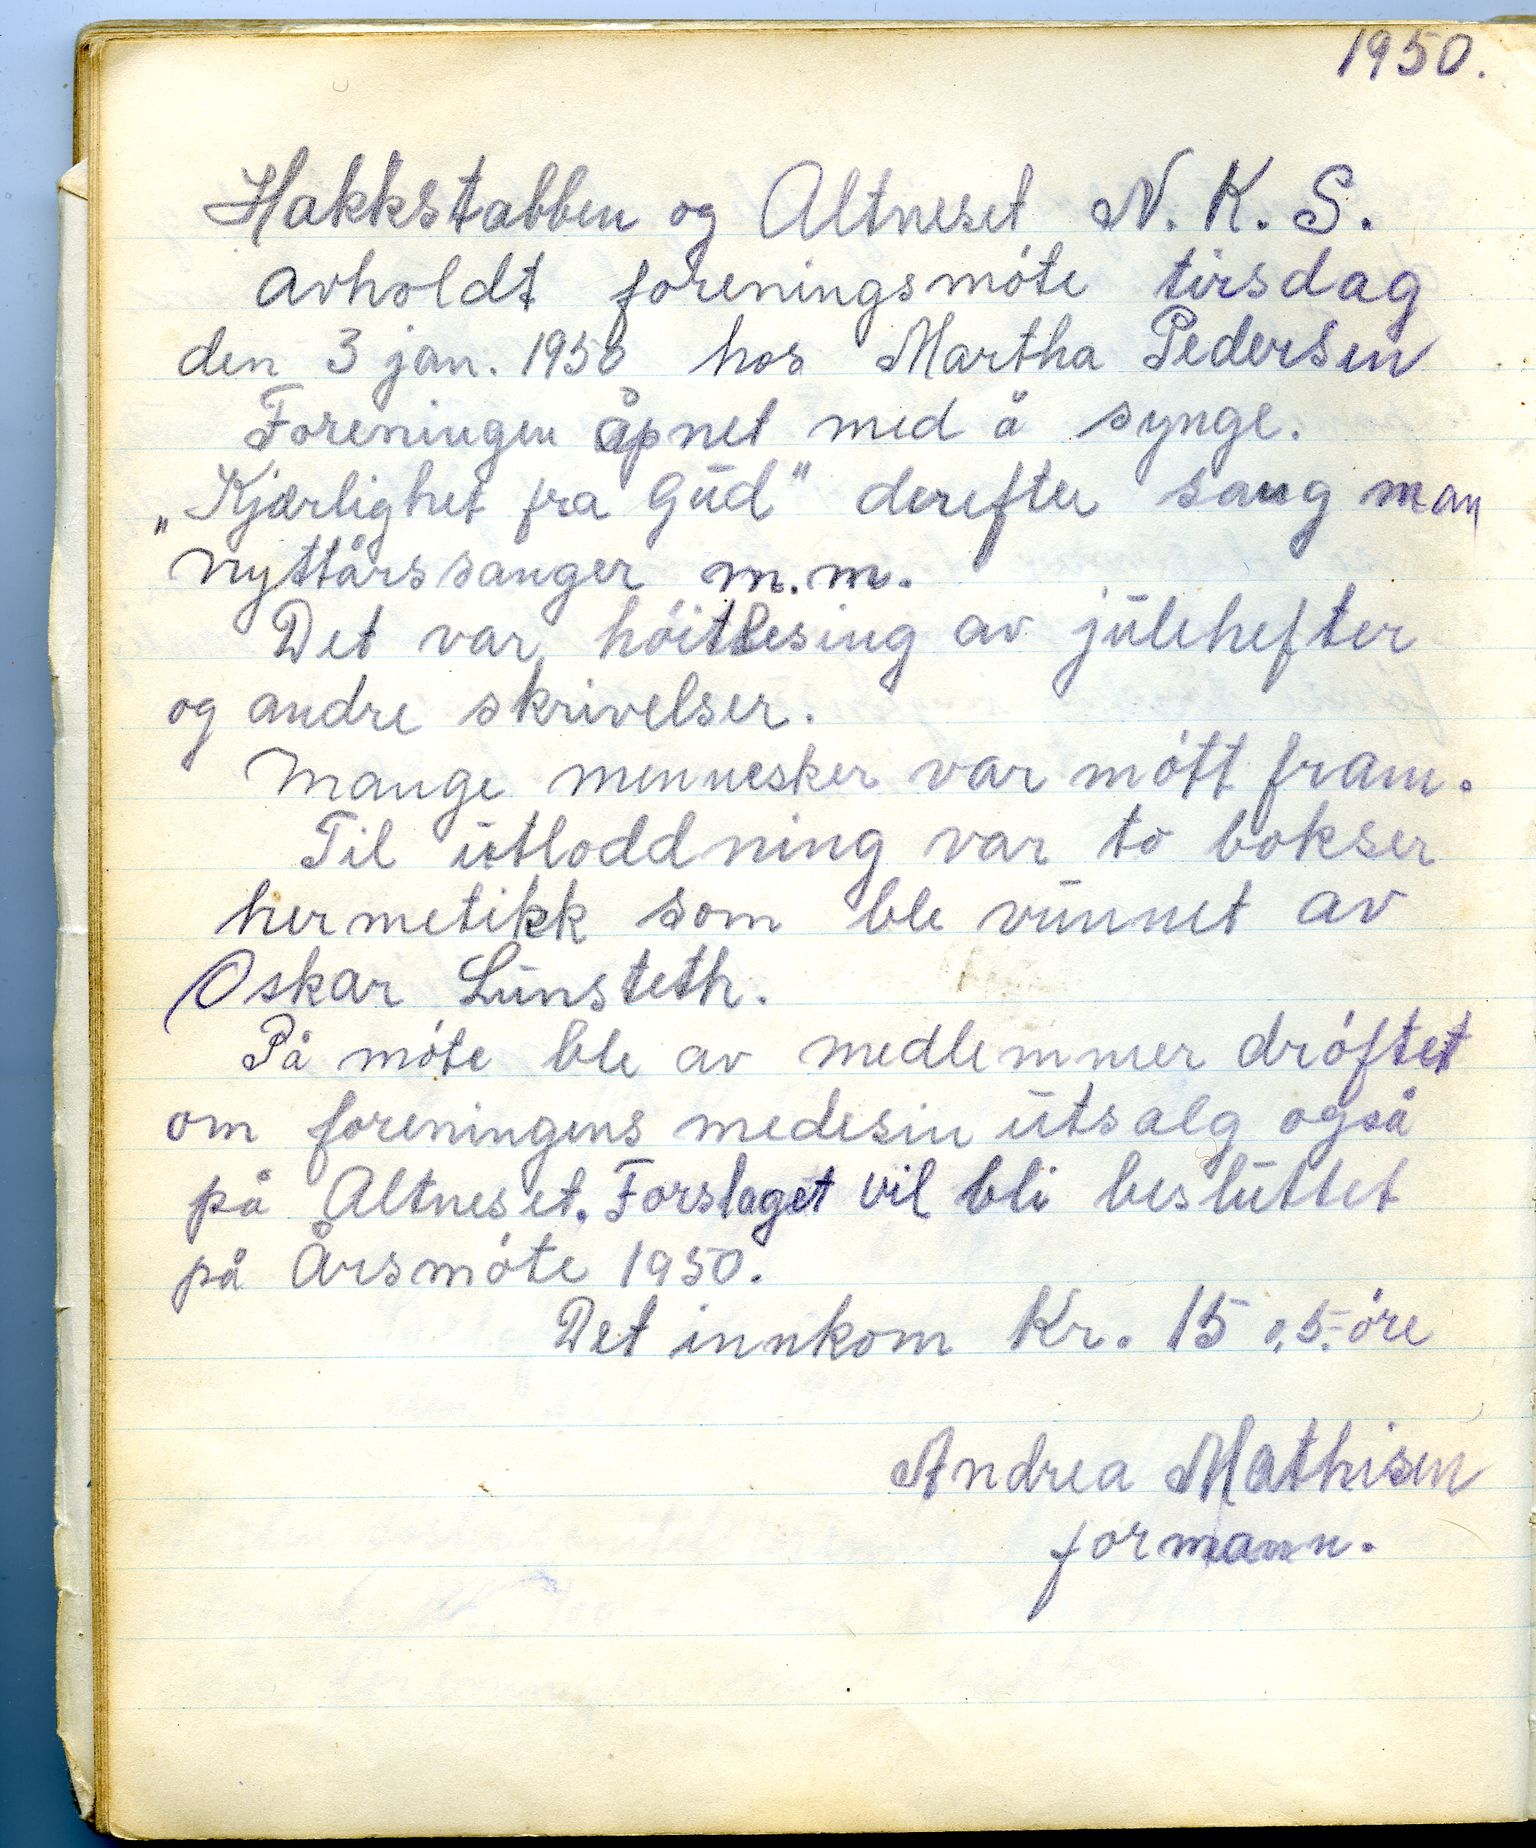 1950.
Hakkstabben og Altneset N. K. S.
avholdt foreningsmóte tirsdag
den 3 jan. 1950 hos Martha Pedersen
Foreningen åpnet med å synge.
„Kjærlighet fra Gud" derefter sang man
nyttårssanger m.m.
Det var hóitlesing av julehefter
og andre skrivelser.
Mange mennesker var mótt fram.
Til utloddning var to bokser
hermetikk som ble vunnet av
Oskar Lunsteth.
På móte ble av medlemmer dróftet
om foreningens medesin utsalg også
på Altneset. Forslaget vil bli besluttet
på Årsmóte 1950.
Det innkom Kr. 15 o, 5.- óre
Andrea Mathisen
formann.